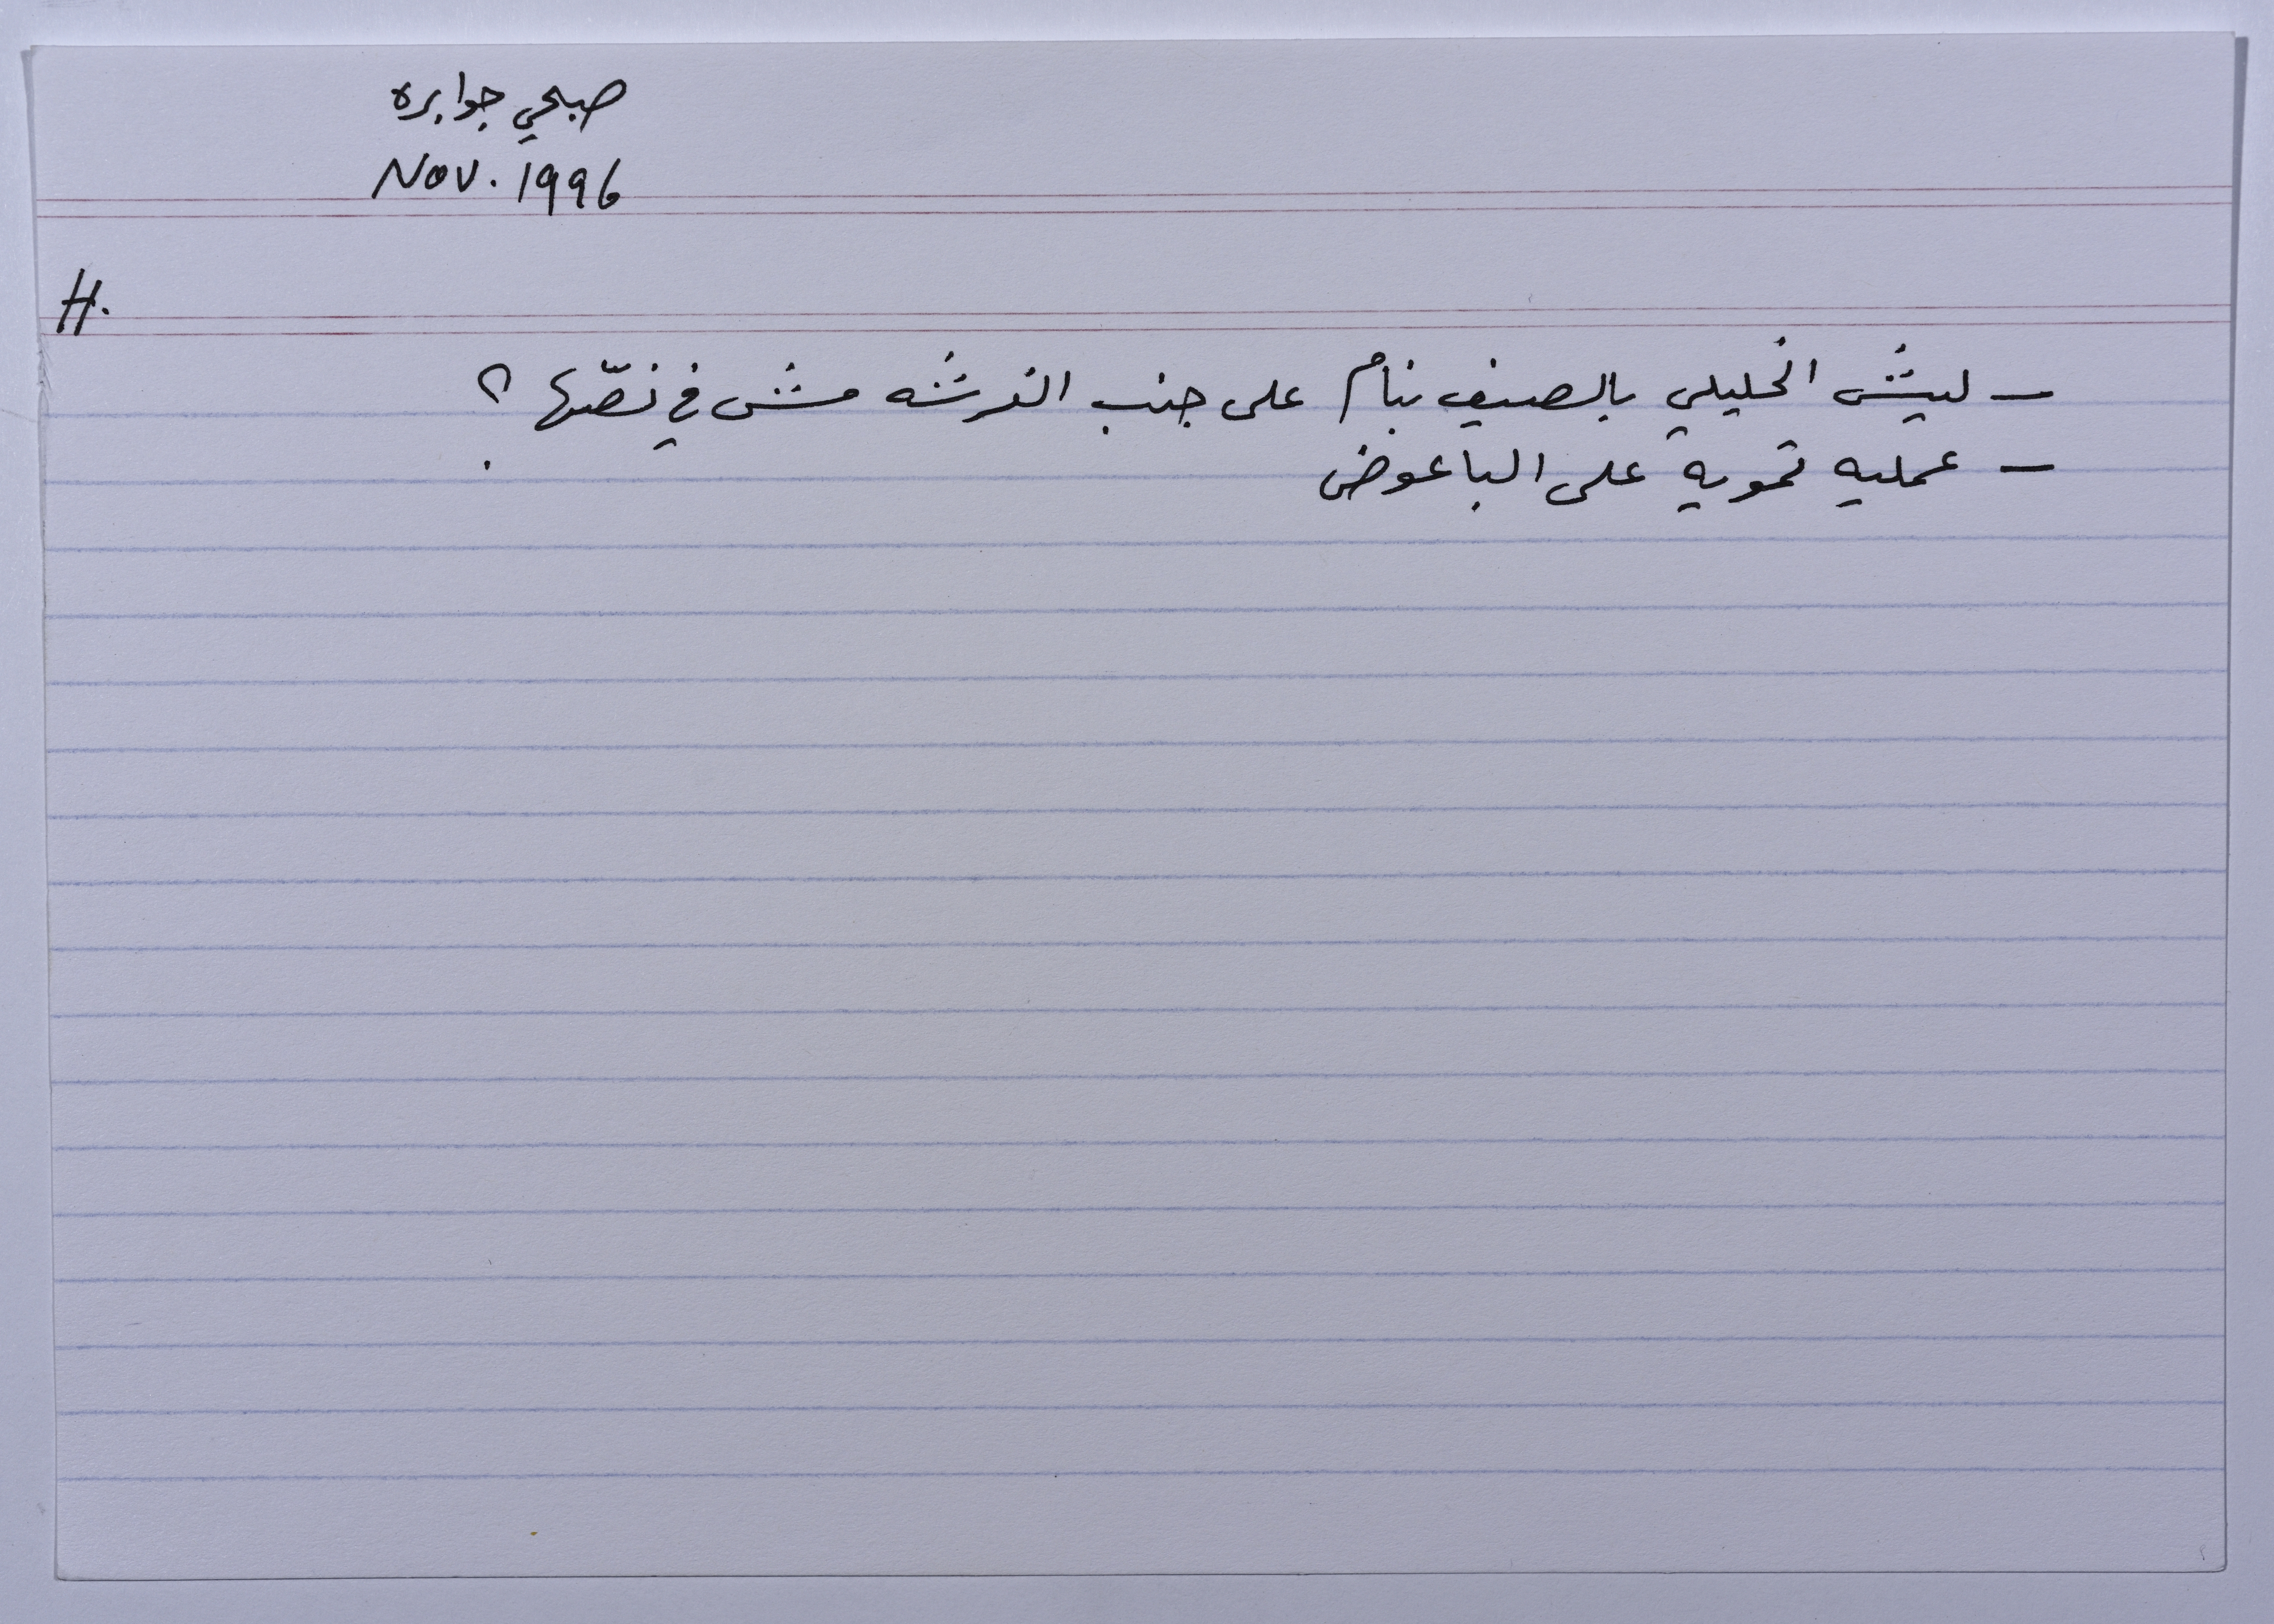 صبحي جوابره
Nov. 1996
H.
- ليش الخليلي بالصيف بنام على جنب الفرشه مش في نصّها ؟
- عمليه تمويه على الباعوض